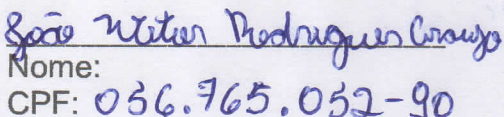 João Vitor Rodrigues Araujo
Nome:
CPF: 056.765.052-90